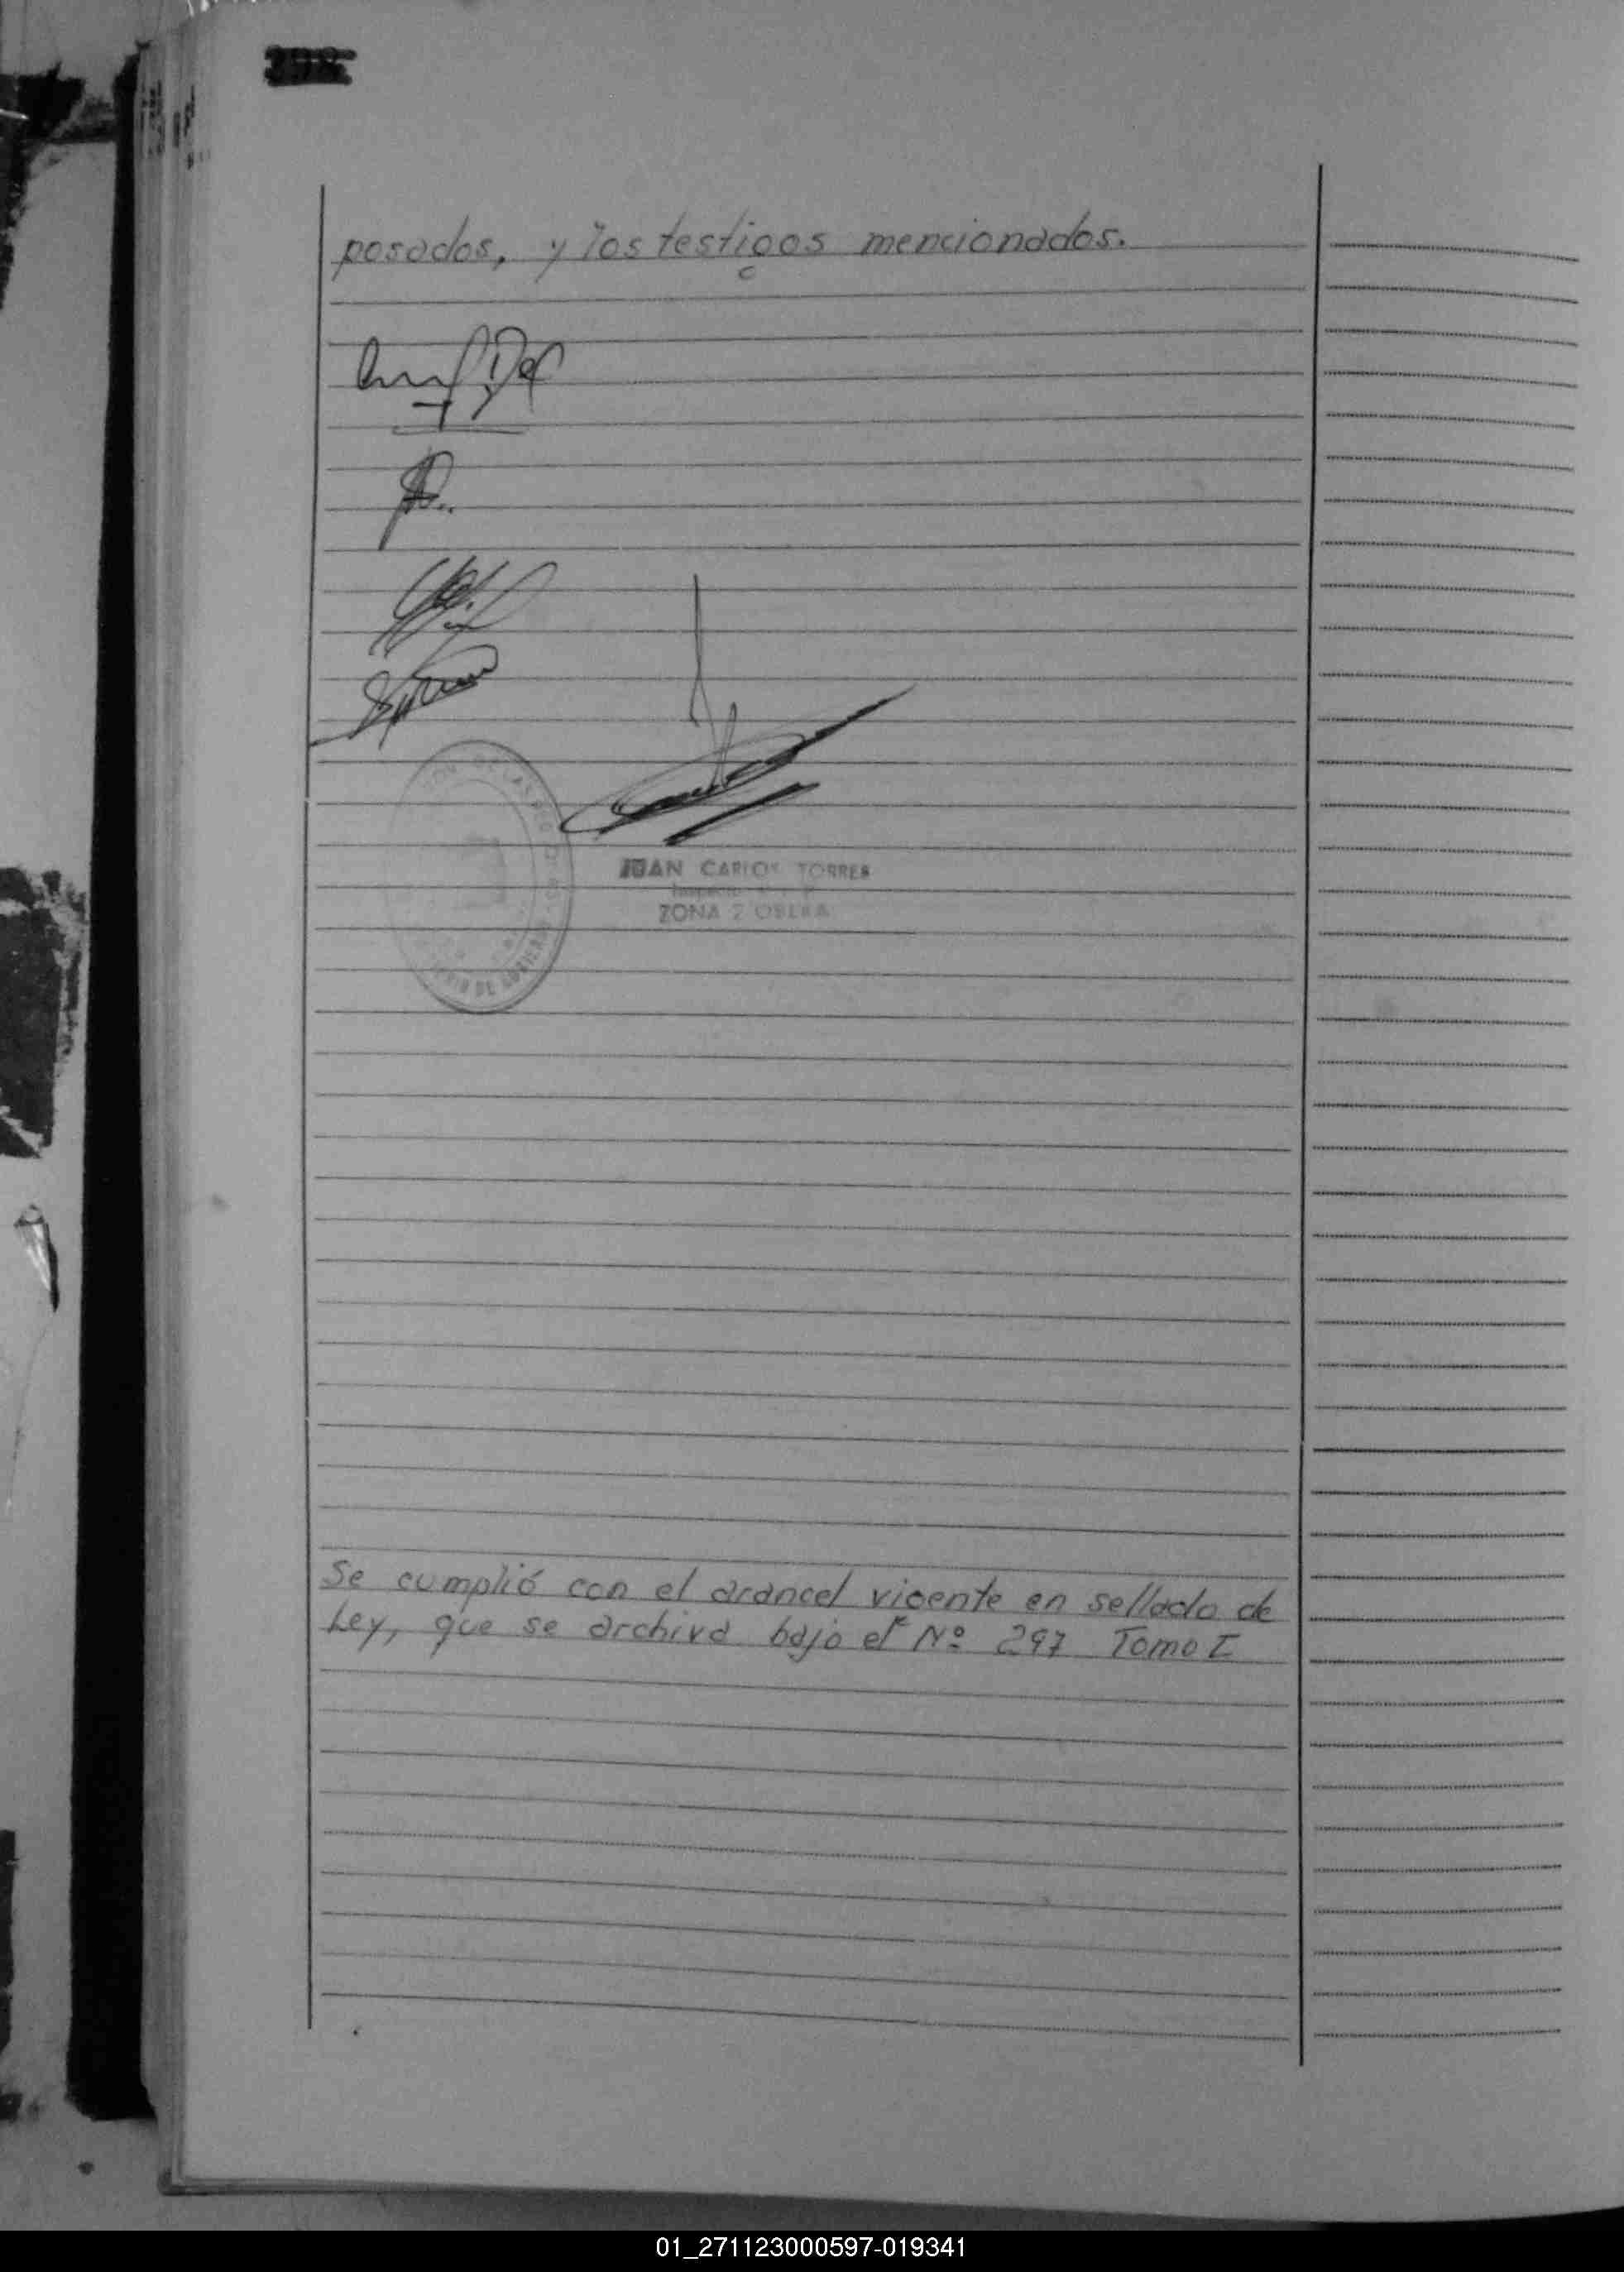 posados, y los testigos mencionados.
JUAN CARLOS TORRES
ZONA 2 OBERA
Se cumplió con el arancel vigente en sellado de
Ley, que se archiva bajo el Nº 297 Tomo I
01_271123000597-019341